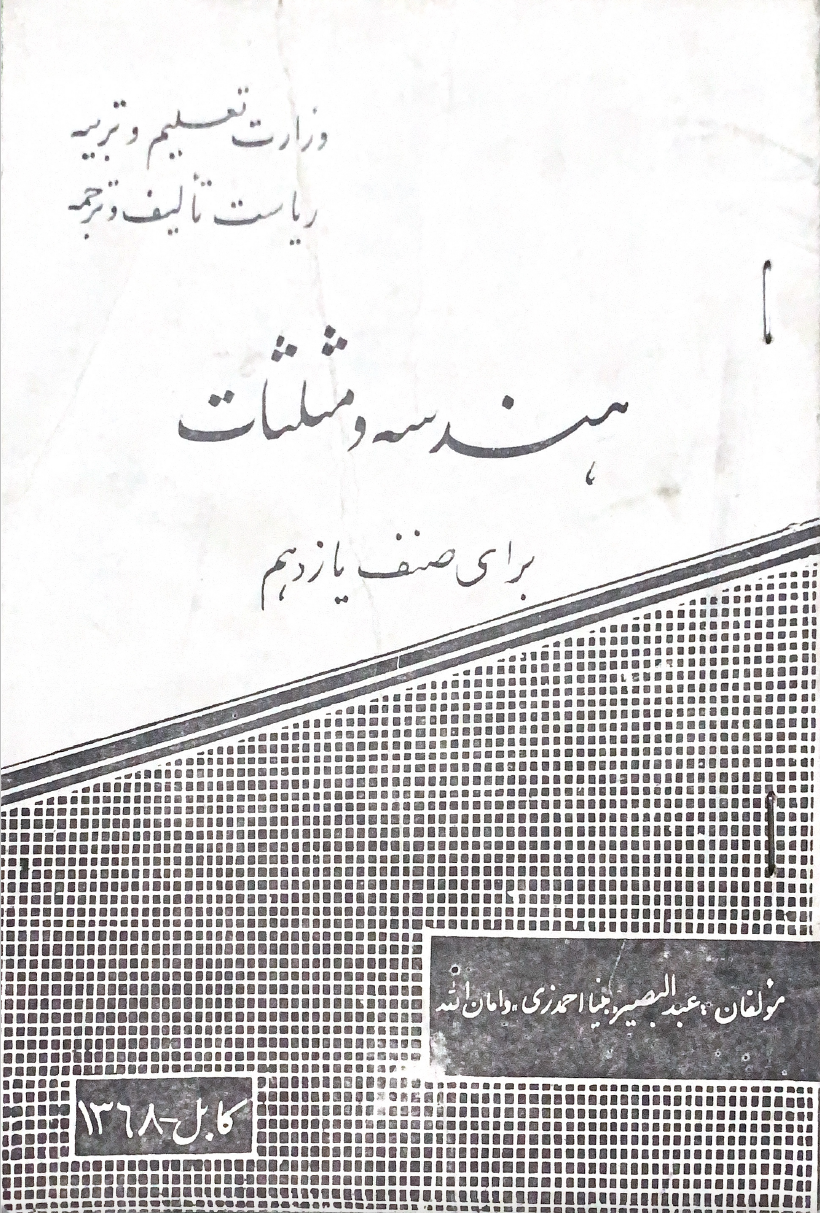 وزارت تعلیم و تربیه
ریاست تألیف و ترجمه
هندسه و مثلثات
برای صنف یازدهم
مؤلفان: عبدالبصیر، بینا احمدزی، و امان الله
کابل - ۱۳۶۸